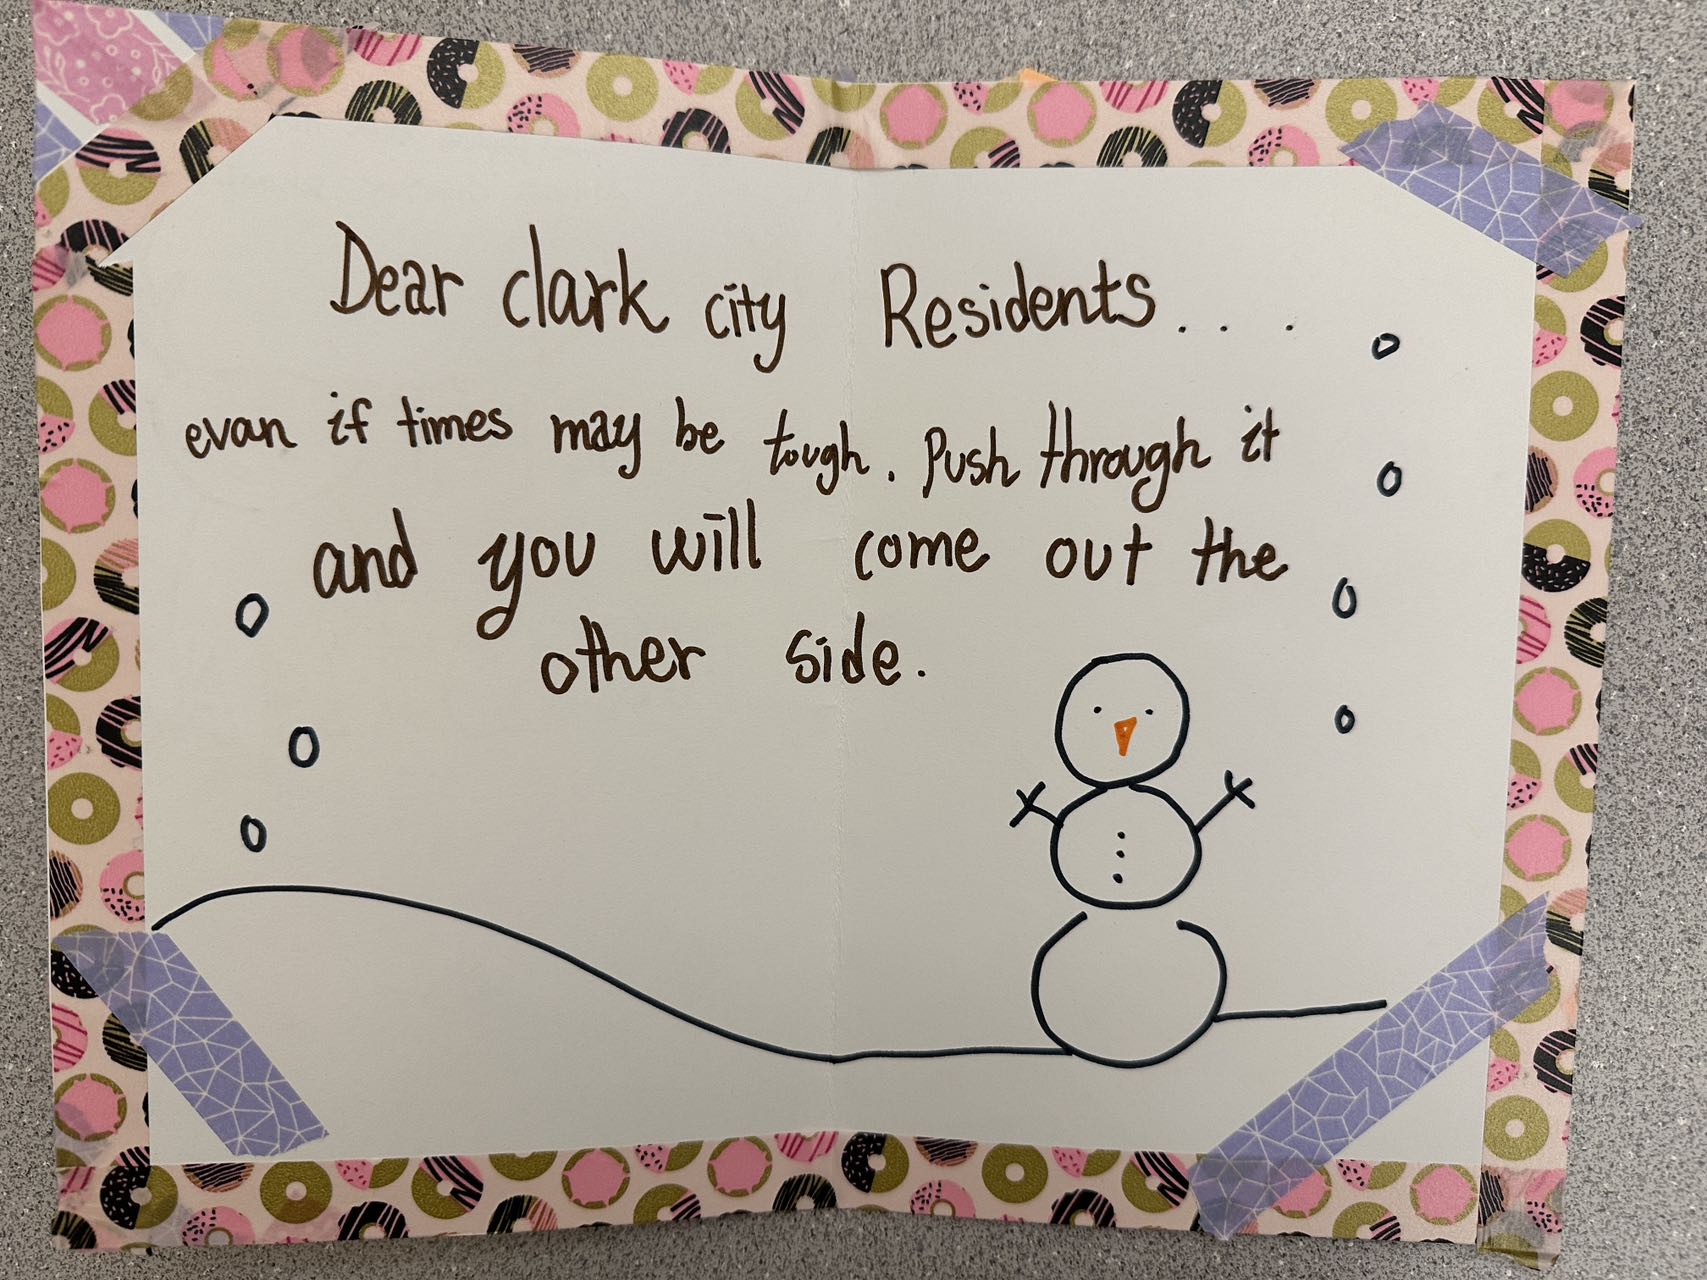 Dear clark city Residents. . . .
evan if times may be tough. Push through it
and you will come out the
other side.